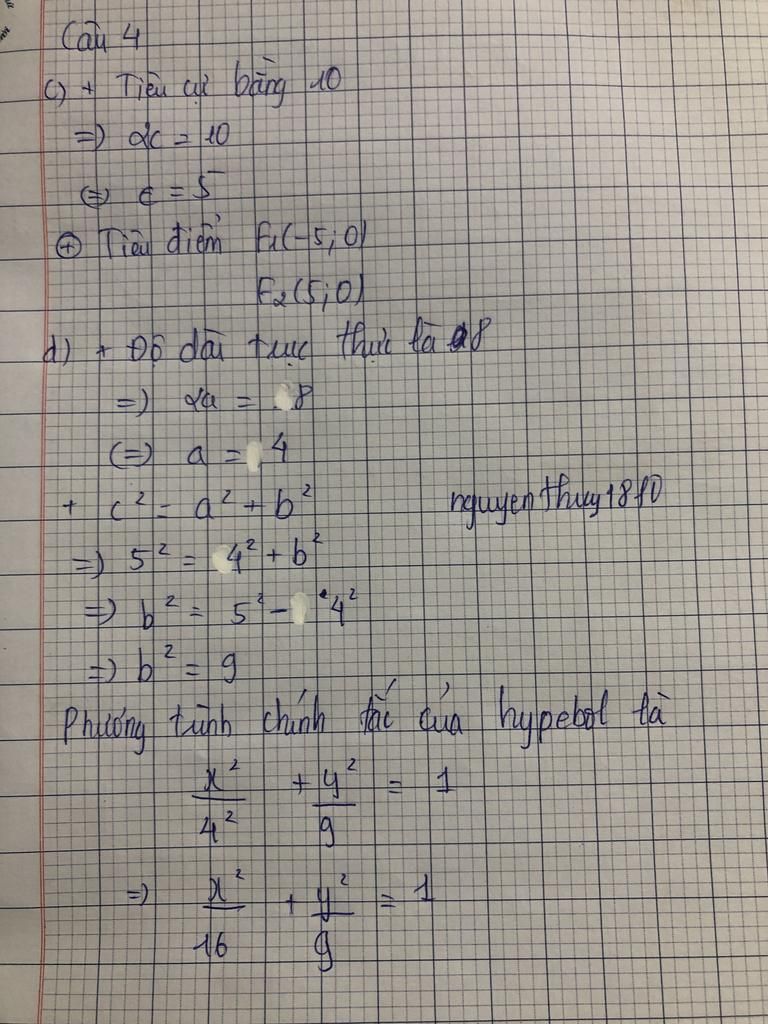 Câu 4
c) + Tiêu cự bằng 10
=) 2c = 10
(=) c = 5
⊕ Tiêu điểm F1(-5; 0)
F2(5; 0)
d) + Độ dài trục thực là 8
=) 2a = 8
(=) a = 4
+ c² = a² + b²
nguyenthuy1810
=) 5² = 4² + b²
=) b² = 5² - 4²
=) b² = 9
Phương trình chính tắc của hypebol là
x²/4² + y²/9 = 1
=) x²/16 + y²/9 = 1